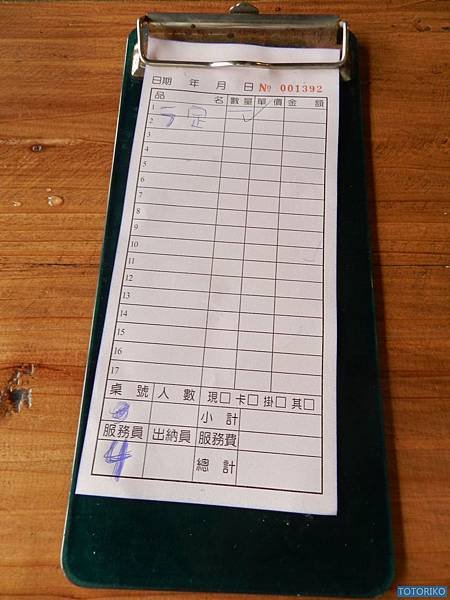 日期 年 月 日 № 001392
品 名 數量 單價 金 額
1
2
3
4
5
6
7
8
9
10
11
12
13
14
15
16
17
桌號 人數 現□ 卡□ 掛□ 其□
小計
服務員 出納員 服務費
4 總計
TOTORIKO